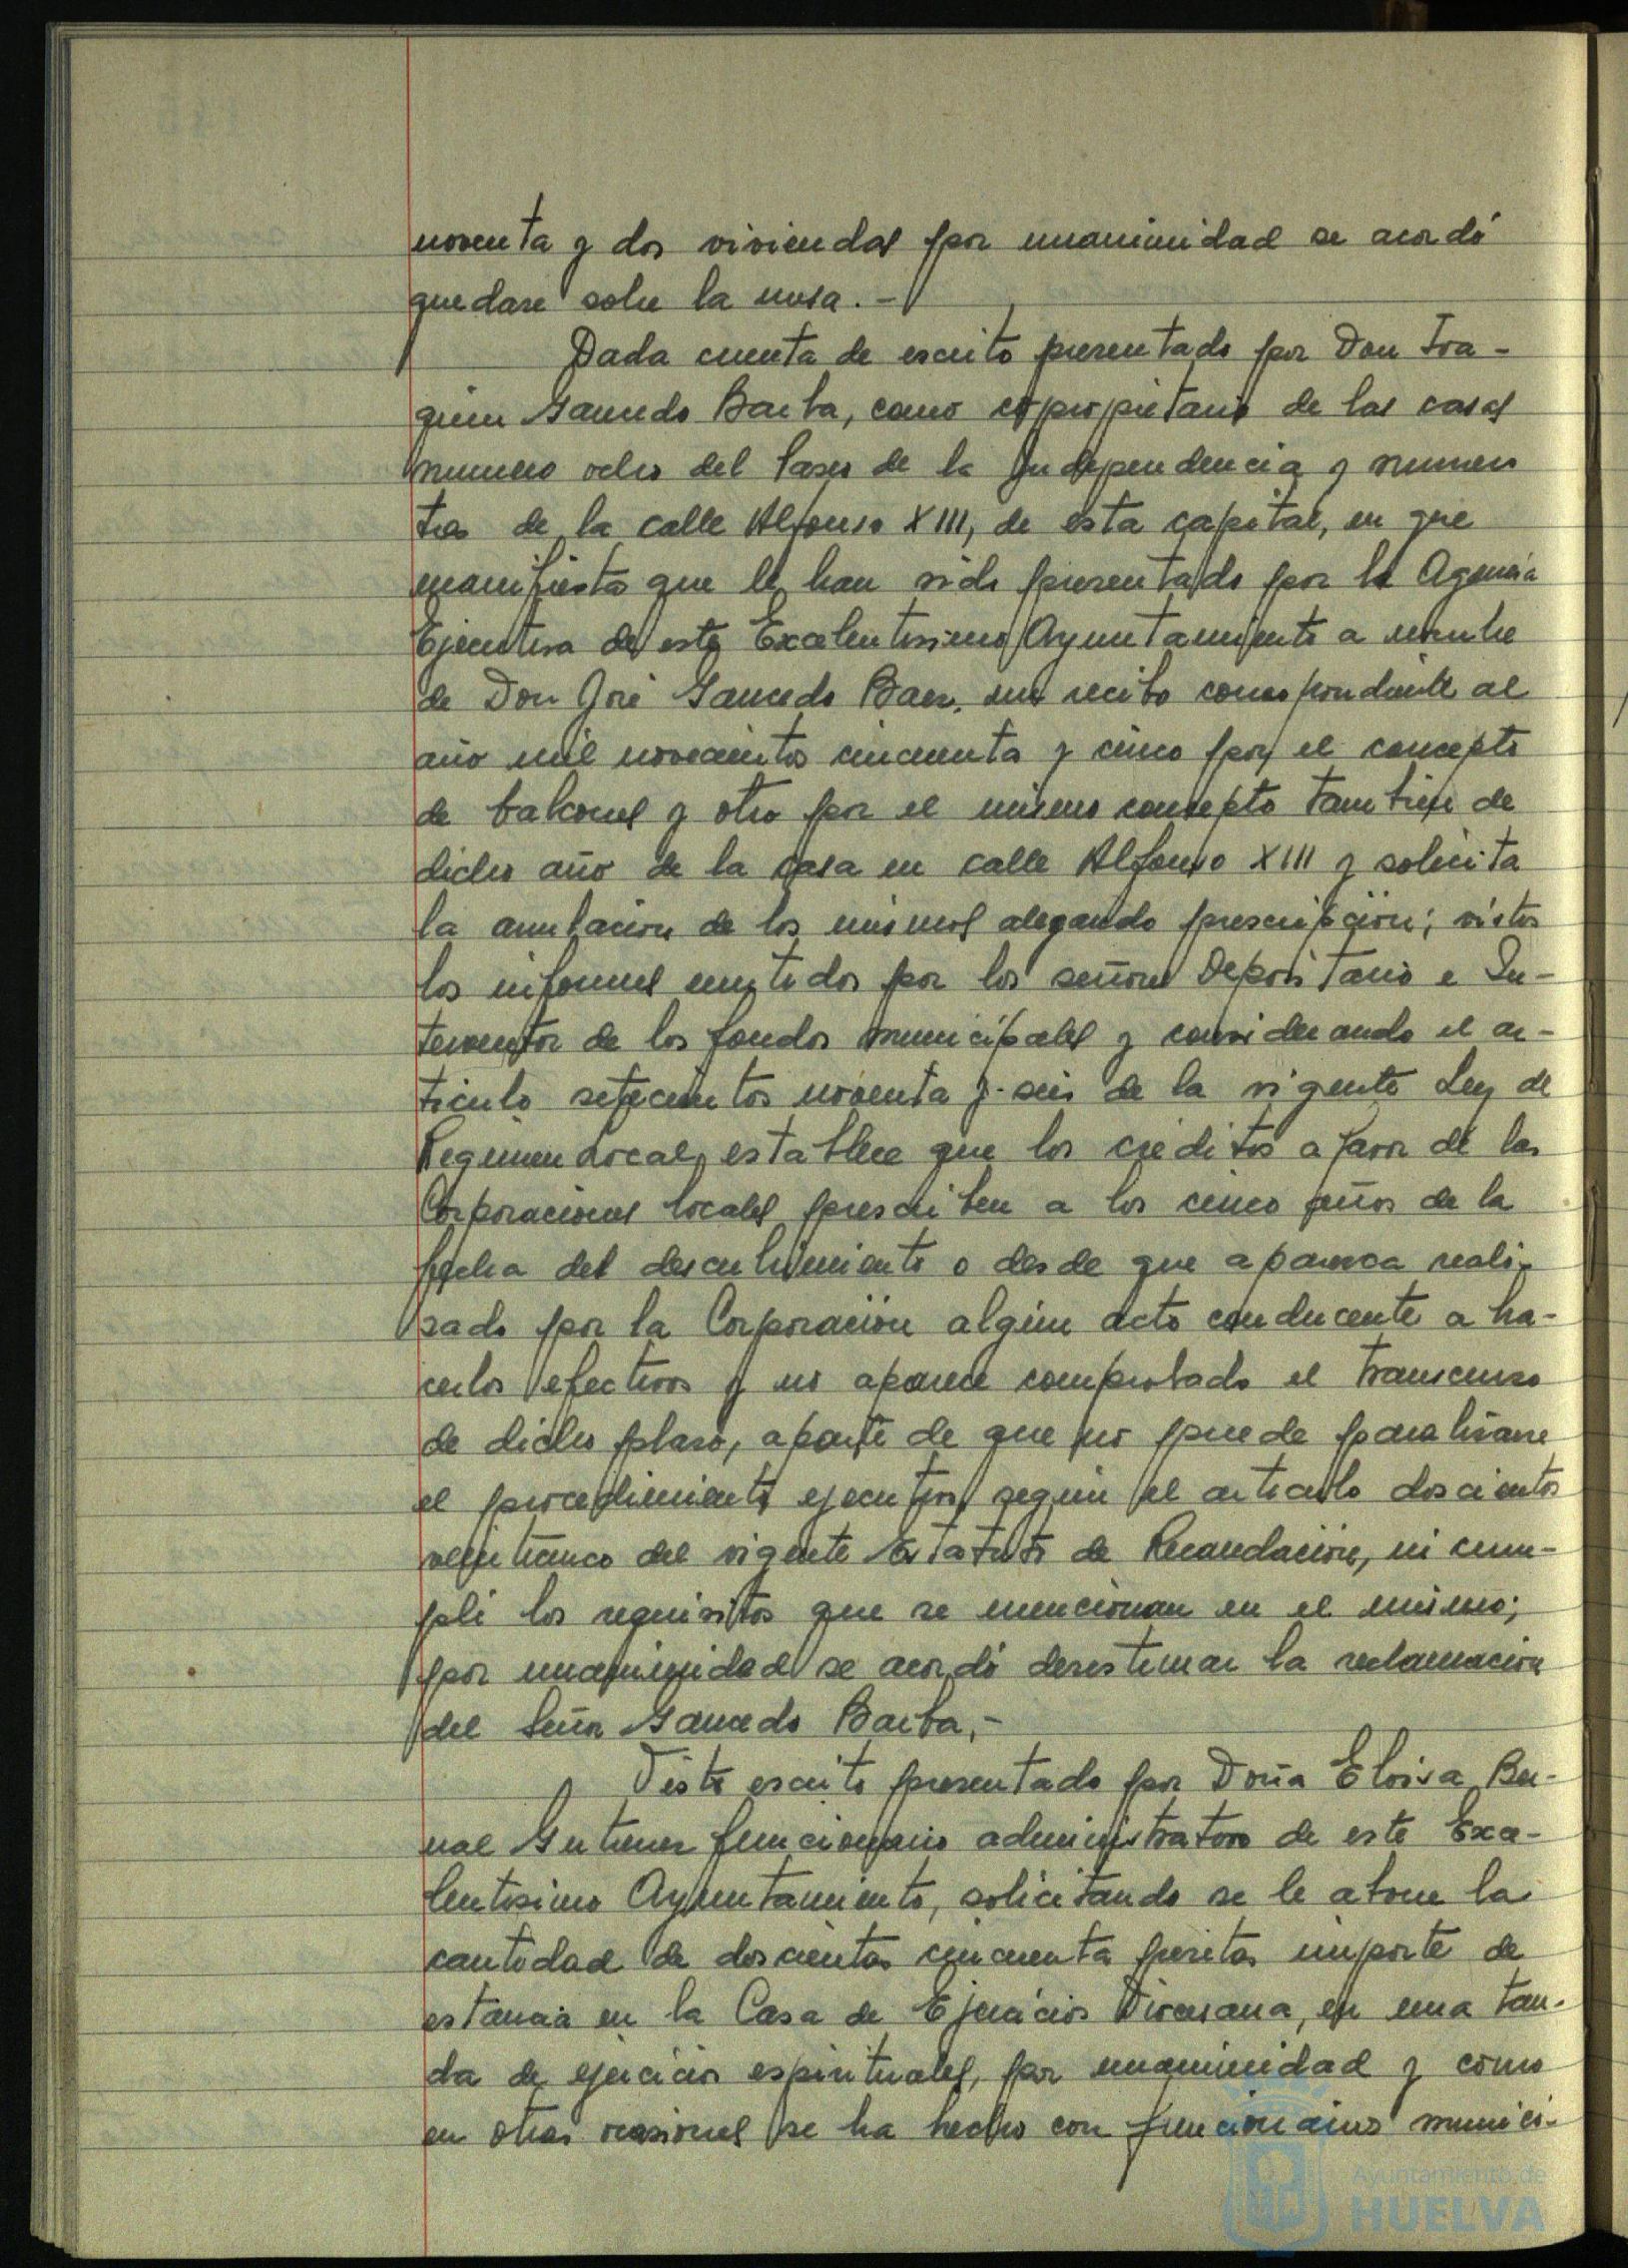 noventa y dos viviendas por unanimidad se acordó
quedase sobre la mesa.-
Dada cuenta de escrito presentado por Don Joa-
quin Gancedo Barba, como copropietario de las casas
numero ocho del Paseo de la Independencia y numero
tres de la calle Alfonso XIII, de esta capital, en que
manifiesta que le han sido presentado por la Agencia
Ejecutiva de este Excelentisimo Ayuntamiento a nombre
de Don José Gancedo Baez, un recibo correspondiente al
año mil novecientos cincuenta y cinco por el concepto
de balcones y otro por el mismo concepto tambien de
dicho año de la casa en calle Alfonso XIII y solicita
la anulacion de los mismos alegando prescripción; vistos
los informes emitidos por los señores Depositario e In-
terventor de los fondos municipales y considerando el ar-
ticulo setecientos noventa y seis de la vigente Ley de
Regimen Local, establece que los creditos a favor de las
Corporaciones locales prescriben a los cinco años de la
fecha del descubrimiento o desde que aparezca reali-
zado por la Corporación algún acto conducente a ha-
cerlos efectivos y no aparece comprobado el transcurso
de dicho plazo, aparte de que no puede paralizarse
el procedimiento ejecutivo según el articulo doscientos
veinticinco del vigente Estatuto de Recaudación, ni cum-
pli los requisitos que se mencionan en el mismo;
por unanimidad se acordó desestimar la reclamacion
del Señor Gancedo Barba.-
Visto escrito presentado por Doña Eloisa Ber-
nal Gutierrez funcionario administrativo de este Exce-
lentisimo Ayuntamiento, solicitando se le abone la
cantidad de doscientas cincuenta pesetas importe de
estancia en la Casa de Ejercicios Diocesana, en una tan-
da de ejercicios espirituales, por unanimidad y como
en otras ocasiones se ha hecho con funcionarios munici-
Ayuntamiento de
HUELVA